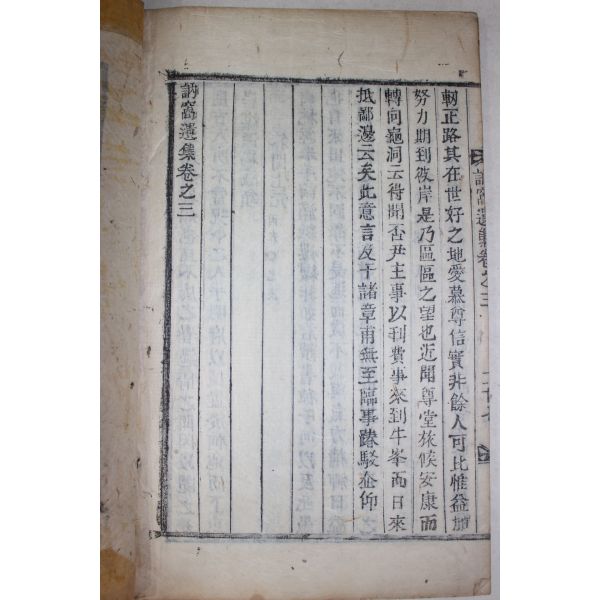 訥窩遺集卷之三
軔正路其在世好之地愛慕尊信實非餘人可比惟益加
努力期到彼岸是乃區區之望也近聞尊堂旅候安康而
轉向龜洞云得聞否尹主事以刊費事來到牛峯而日來
抵鄙邊云矣此意言及于諸章甫無至臨事踳駁企仰
訥窩遺集卷之三